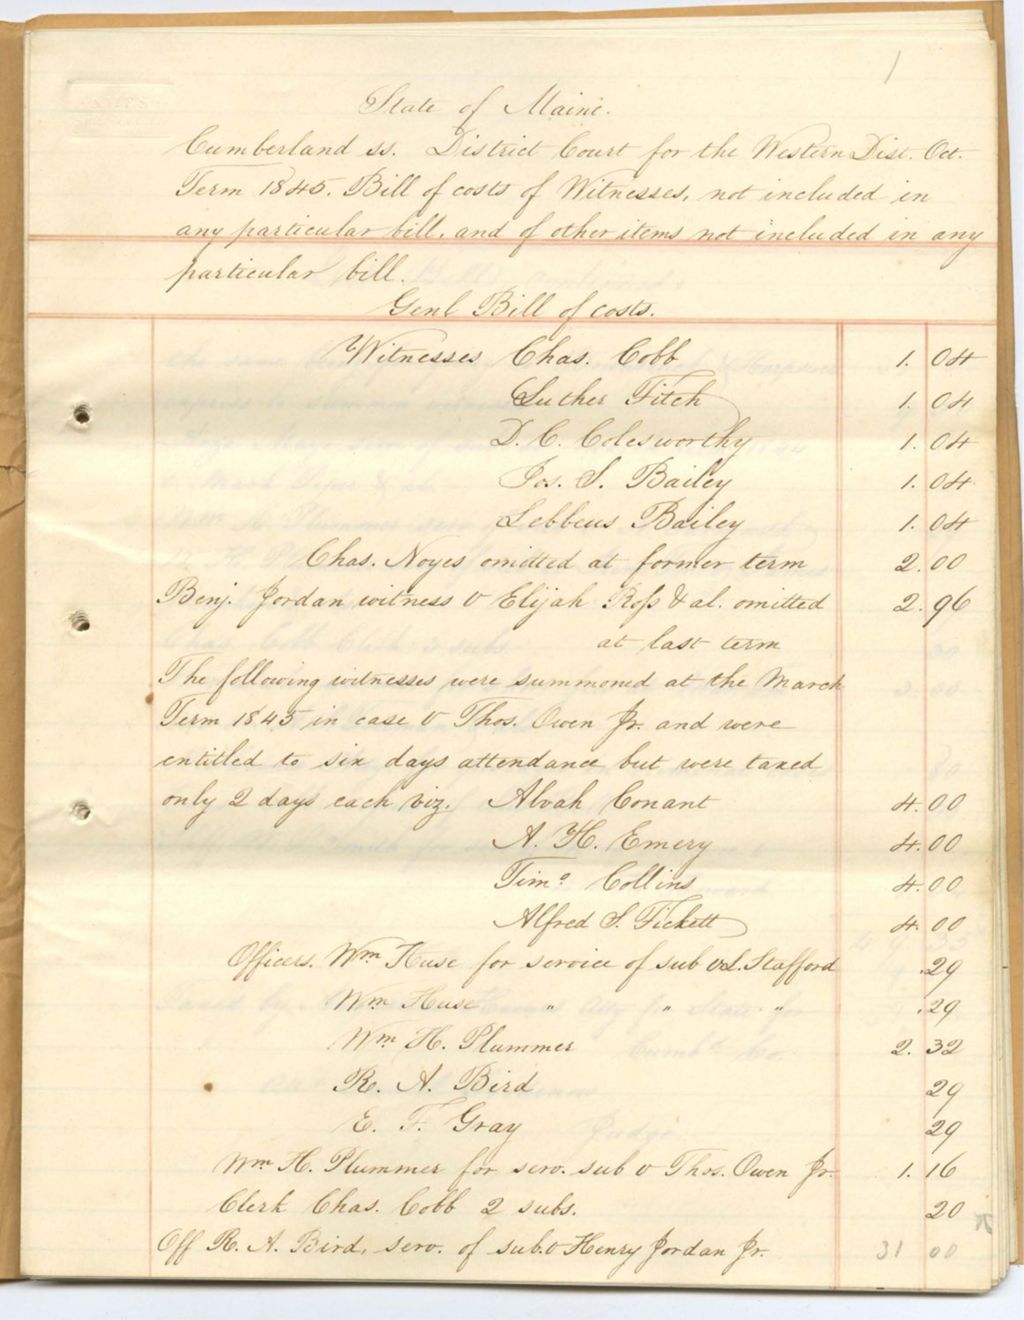 1
State of Maine.
Cumberland ss. District Court for the Western Dist. Oct.
Term 1845. Bill of costs of Witnesses, not included in
any particular bill, and of other items not included in any
particular bill.
Genl Bill of costs.
Witnesses Chas. Cobb 1. 04
Luther Fitch 1. 04
D. C. Colesworthy 1. 04
Jos. S. Bailey 1. 04
Lebbeus Bailey 1. 04
Chas. Noyes omitted at former term 2. 00
Benj. Jordan witness v Elijah Ross & al. omitted 2. 96
at last term
The following witnesses were summoned at the March
Term 1845 in case v Thos. Owen Jr. and were
entitled to six days attendance but were taxed
only 2 days each viz. Alvah Conant 4. 00
A. H. Emery 4. 00
Timo Collins 4. 00
Alfred S. Fickett 4. 00
Officers. Wm Huse for service of sub v L. Stafford .29
Wm Huse " " " .29
Wm H. Plummer 2. 32
R. A. Bird 29
E. F. Gray 29
Wm H. Plummer for serv. sub v Thos. Owen Jr. 1. 16
Clerk Chas. Cobb 2 subs. 20
Off R. A. Bird, serv. of sub. v Henry Jordan Jr.
31 00